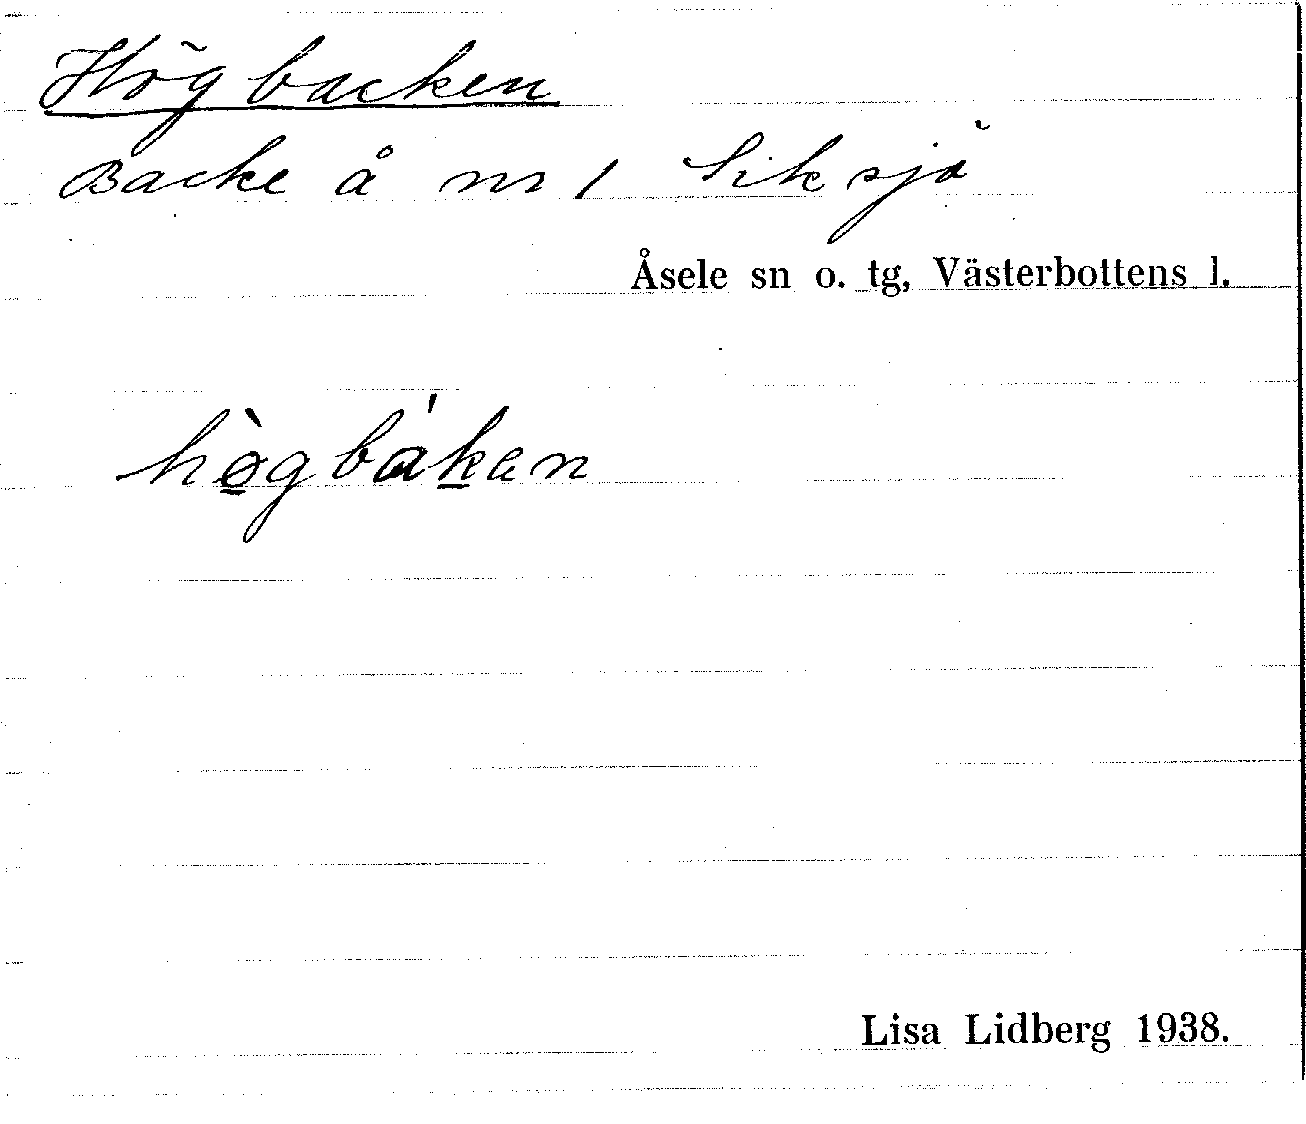 Högbacken
Backe å nr 1 Siksjö
Åsele sn o. tg, Västerbottens l.
hø̲̀gbák̲en
Lisa Lidberg 1938.